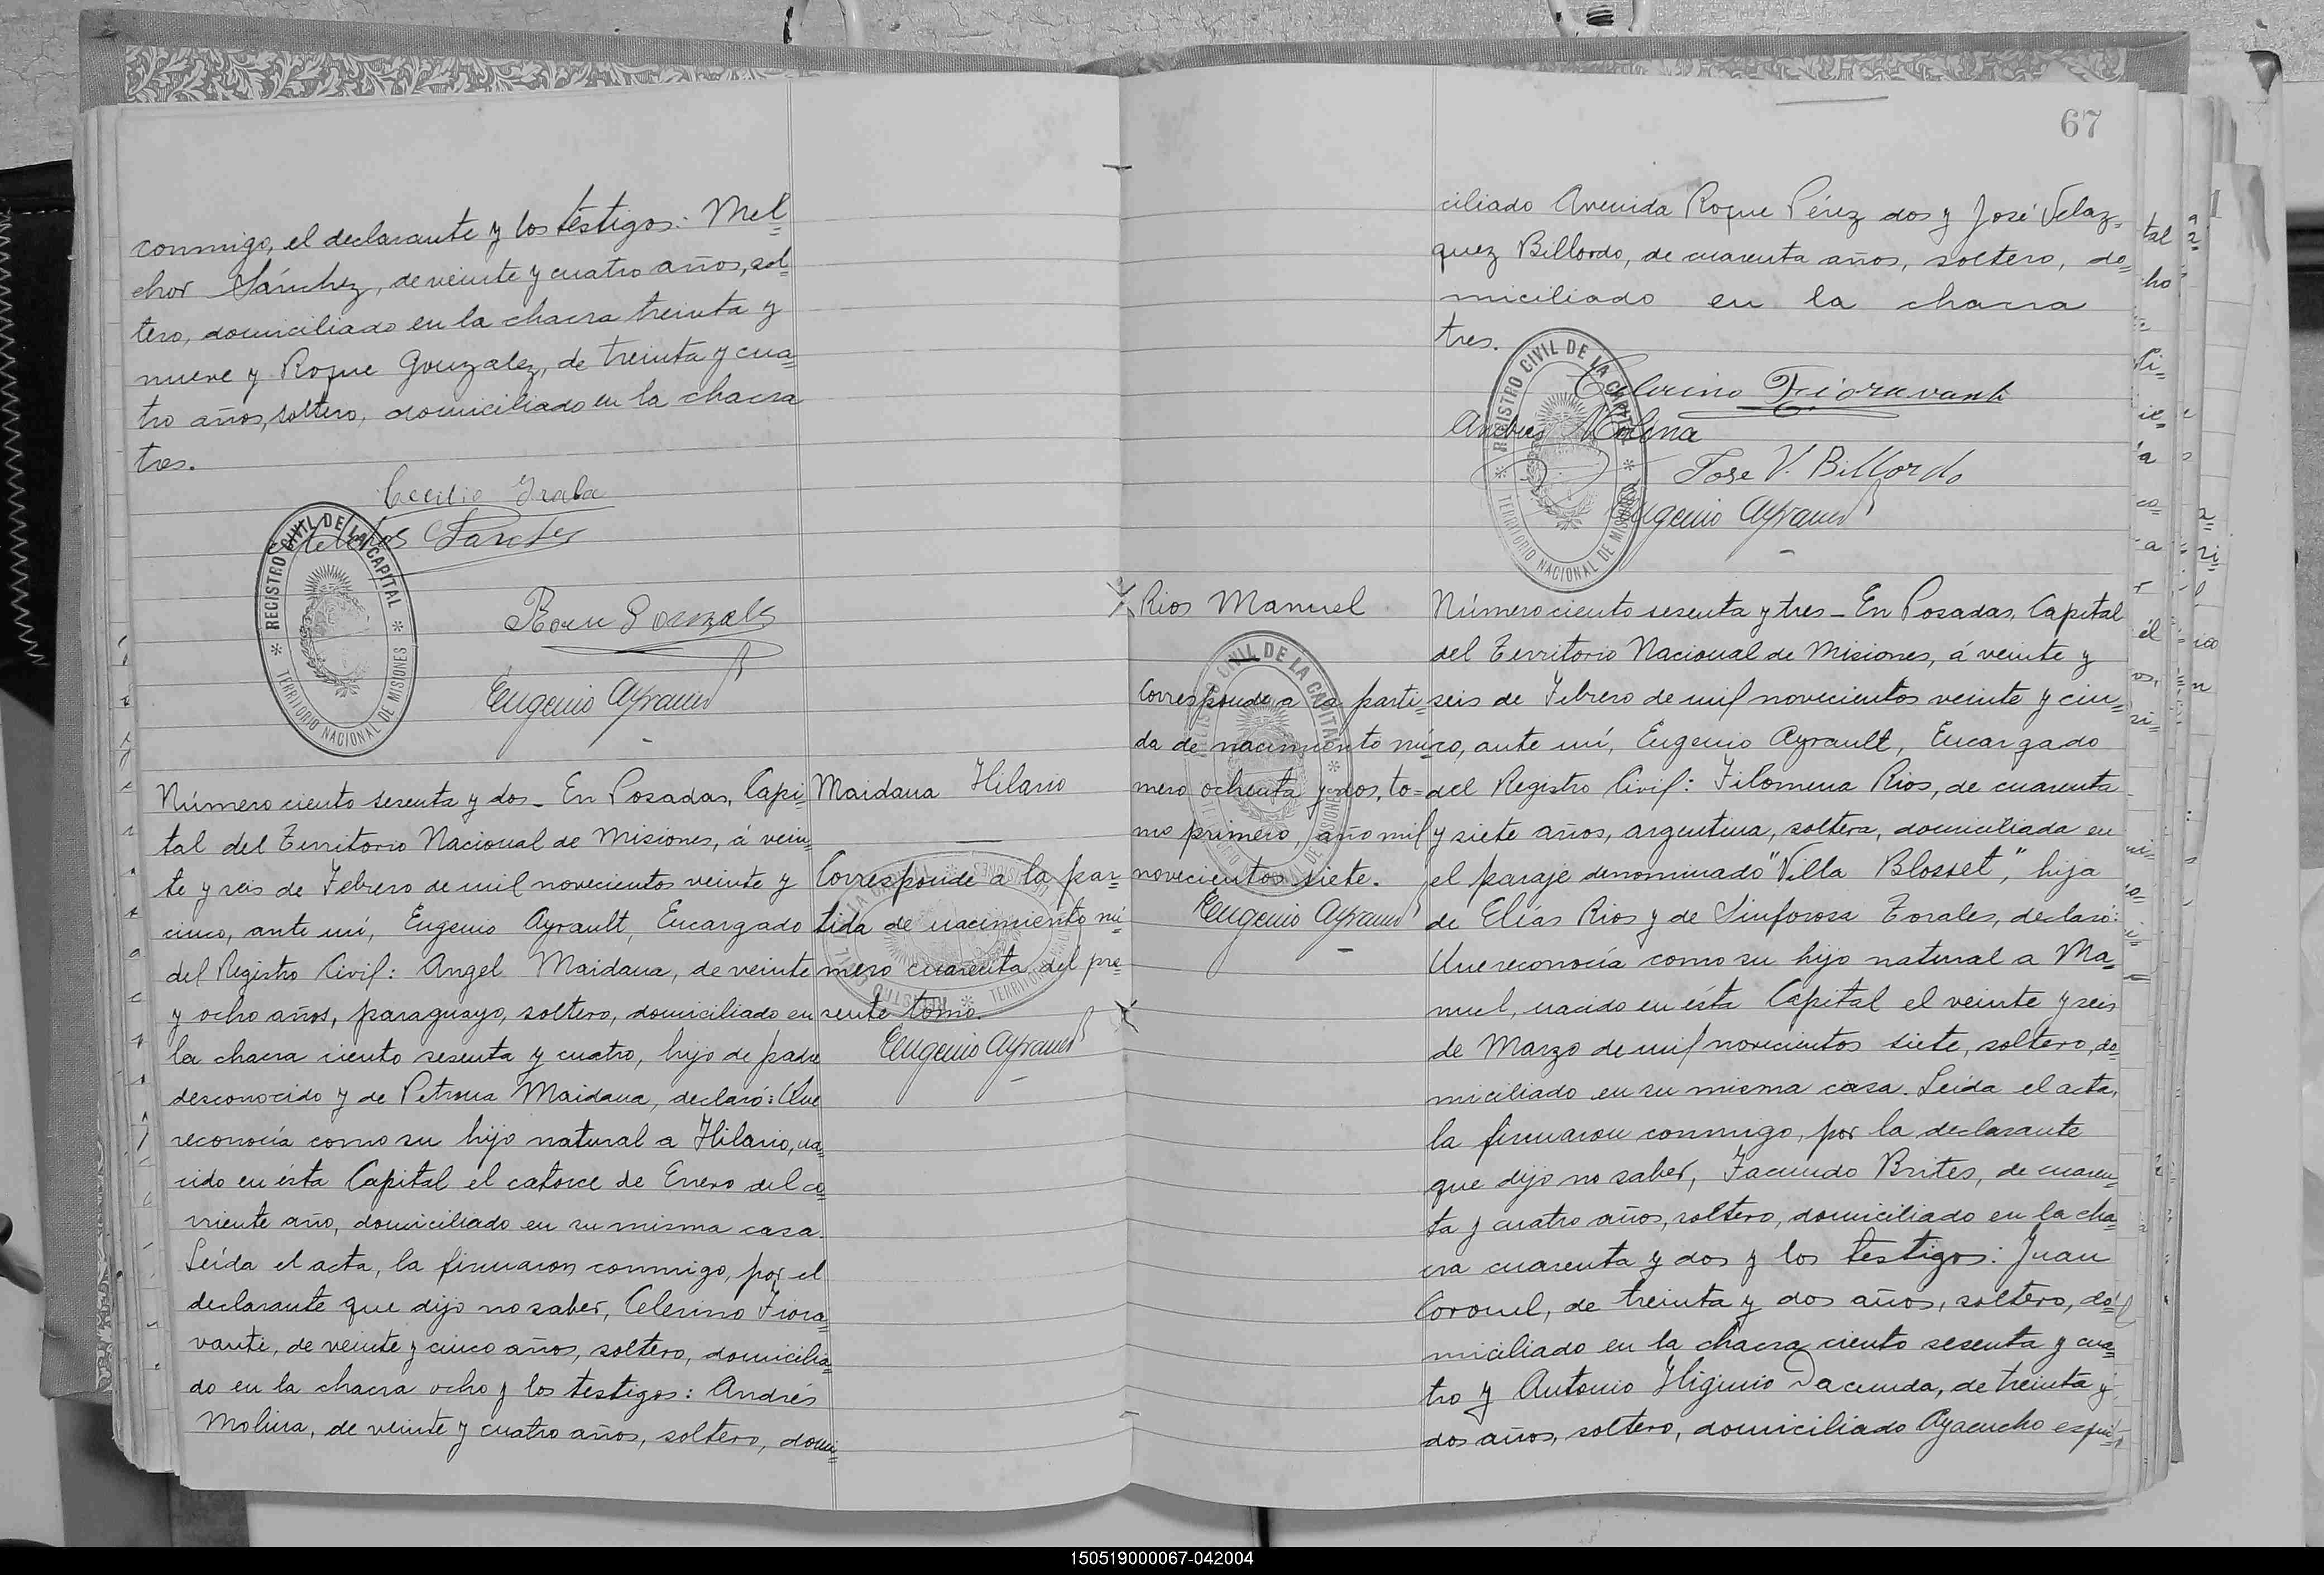 conmigo, el declarante y los testigos: Mel=
chor Sánchez, de veinte y cuatro años, sol=
tero, domiciliado en la chacra treinta y
nueve y Roque Gonzalez, de treinta y cua=
tro años, soltero, domiciliado en la chacra
tres.
Cecilio Irala
Melchor Sanches
Roque Gonzales
Eugenio Ayrault
REGISTRO CIVIL DE LA CAPITAL
* TERRITORIO NACIONAL DE MISIONES *
Número ciento sesenta y dos_ En Posadas, Capi=
tal del Territorio Nacional de Misiones, á vein=
te y seis de Febrero de mil novecientos veinte y
cinco, ante mí, Eugenio Ayrault, Encargado
del Registro Civil: Angel Maidana, de veinte
y ocho años, paraguayo, soltero, domiciliado en
la chacra ciento sesenta y cuatro, hijo de padre
desconocido y de Petrona Maidana, declaró: Que
reconocía como su hijo natural a Hilario, na=
cido en ésta Capital el catorce de Enero del co=
rriente año, domiciliado en su misma casa.
Leída el acta, la firmaron conmigo, por el
declarante que dijo no saber, Celerino Fiora=
vante, de veinte y cinco años, soltero, domicilia=
do en la chacra ocho y los testigos: Andrés
Molina, de veinte y cuatro años, soltero, domi=
Maidana Hilario
Corresponde a la par=
tida de nacimiento nú=
mero cuarenta del pre=
sente tomo.
Eugenio Ayrault
REGISTRO CIVIL DE LA CAPITAL
* TERRITORIO NACIONAL DE MISIONES *
67
ciliado Avenida Roque Pérez dos y José Velaz=
quez Billordo, de cuarenta años, soltero, do=
miciliado en la chacra
tres.
Celerino Fioravanti
Andres Molina
Jose V. Billordo
Eugenio Ayrault
REGISTRO CIVIL DE LA CAPITAL
* TERRITORIO NACIONAL DE MISIONES *
Rios Manuel
Corresponde a la parti=
da de nacimiento nú=
mero ochenta y dos, to=
mo primero, año mil
novecientos siete.
Eugenio Ayrault
REGISTRO CIVIL DE LA CAPITAL
* TERRITORIO NACIONAL DE MISIONES *
Número ciento sesenta y tres_ En Posadas, Capital
del Territorio Nacional de Misiones, á veinte y
seis de Febrero de mil novecientos veinte y cin=
co, ante mí, Eugenio Ayrault, Encargado
del Registro Civil: Filomena Rios, de cuarenta
y siete años, argentina, soltera, domiciliada en
el paraje denominado "Villa Blosset", hija
de Elías Rios y de Sinforosa Torales, declaró:
Que reconocía como su hijo natural a Ma=
nuel, nacido en ésta Capital el veinte y seis
de Marzo de mil novecientos siete, soltero, do=
miciliado en su misma casa. Leída el acta,
la firmaron conmigo, por la declarante
que dijo no saber, Facundo Brites, de cuaren=
ta y cuatro años, soltero, domiciliado en la cha=
cra cuarenta y dos y los testigos: Juan
Coronel, de treinta y dos años, soltero, do=
miciliado en la chacra ciento sesenta y cua=
tro y Antonio Higinio Dacunda, de treinta y
dos años, soltero, domiciliado Ayacucho esqui=
150519000067-042004